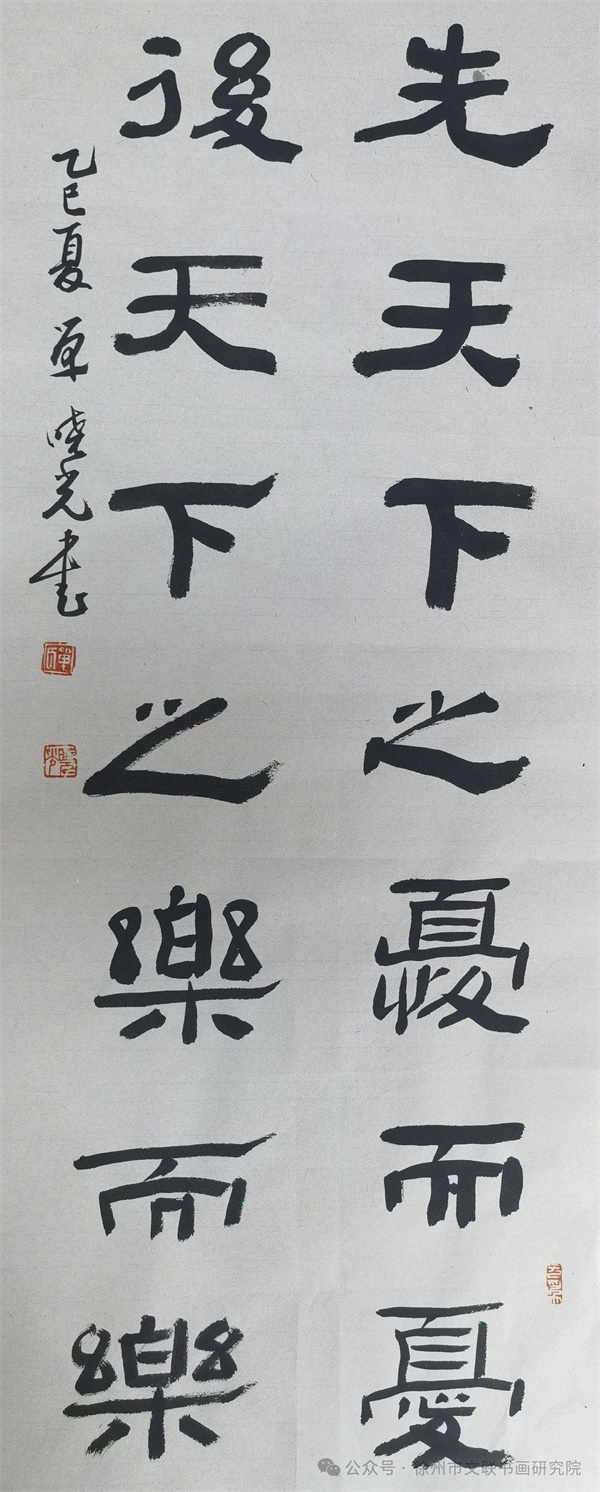 先天下之憂而憂
後天下之樂而樂
乙巳夏單曉光書
公众号·徐州市文联书画研究院